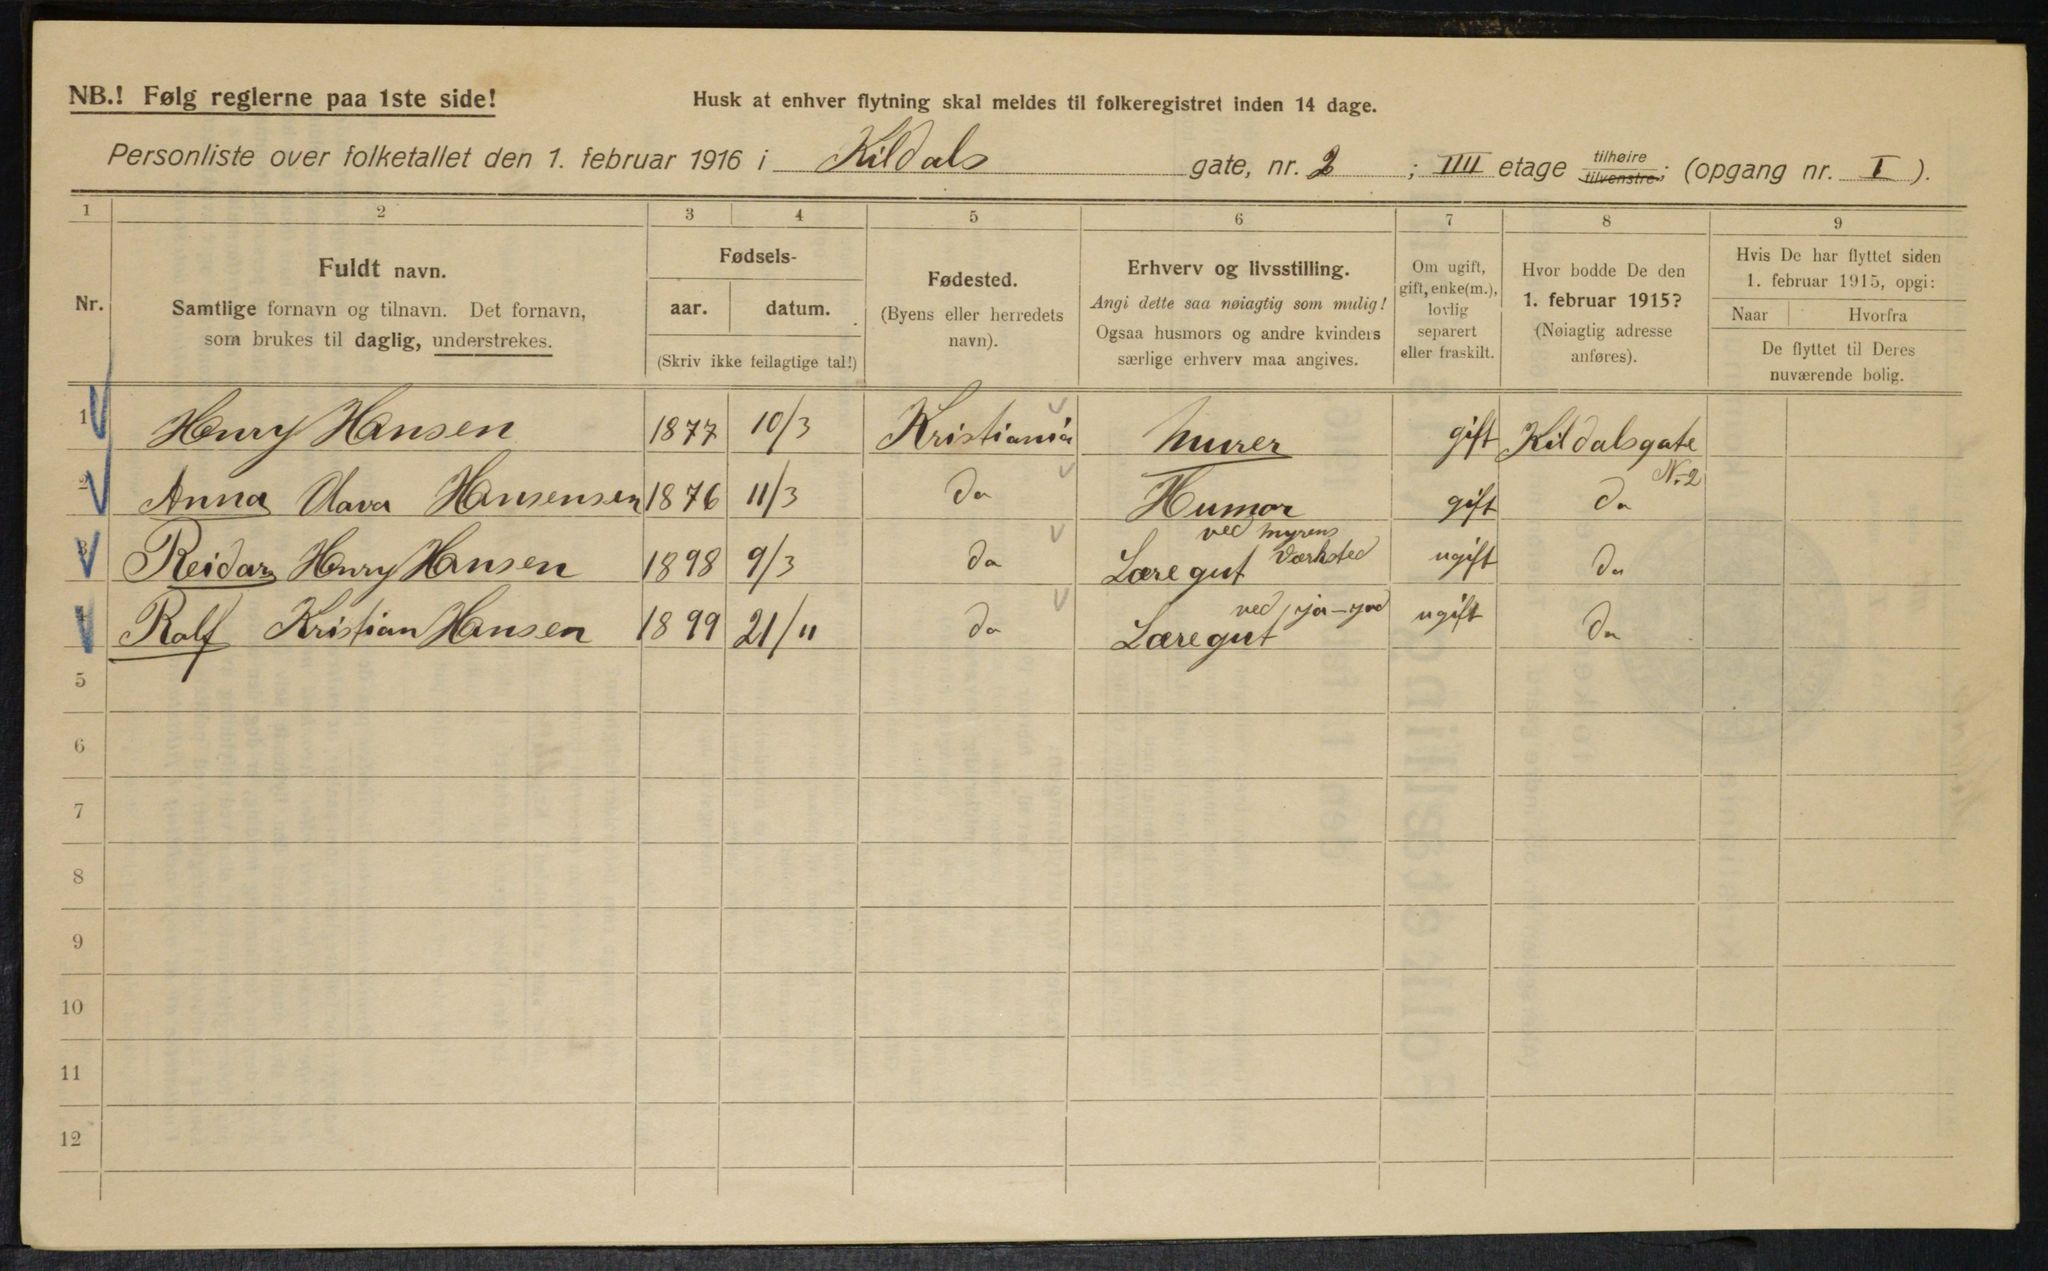 NB.! Følg reglerne paa 1ste side!
Husk at enhver flytning skal meldes til folkeregistret inden 14 dage.
Personliste over folketallet den 1. februar 1916 i Kildals gate, nr. 2 ; IIII etage tilhøire tilvenstre; (opgang nr. I ).
1 2 3 4 5 6 7 8 9
Nr.
Fuldt navn.
Samtlige fornavn og tilnavn. Det fornavn,
som brukes til daglig, understrekes.
Fødsels-
aar. datum.
(Skriv ikke feilagtige tal!)
Fødested.
(Byens eller herredets
navn).
Erhverv og livsstilling.
Angi dette saa nøiagtig som mulig!
Ogsaa husmors og andre kvinders
særlige erhverv maa angives.
Om ugift,
gift, enke(m.),
lovlig
separert
eller fraskilt.
Hvor bodde De den
1. februar 1915?
(Nøiagtig adresse
anføres).
Hvis De har flyttet siden
1. februar 1915, opgi:
Naar Hvorfra
De flyttet til Deres
nuværende bolig.
1 Henry Hansen 1877 10/3 Kristiania Murer gift Kildalsgate N-2
2 Anna Olava Hansensen 1876 11/3 do Humor gift do
3 Reidar Henry Hansen 1898 9/3 do Læregut ved Myrens Værksted ugift do
4 Ralf Kristian Hansen 1899 21/11 do Læregut ved ugift do
5
6
7
8
9
10
11
12